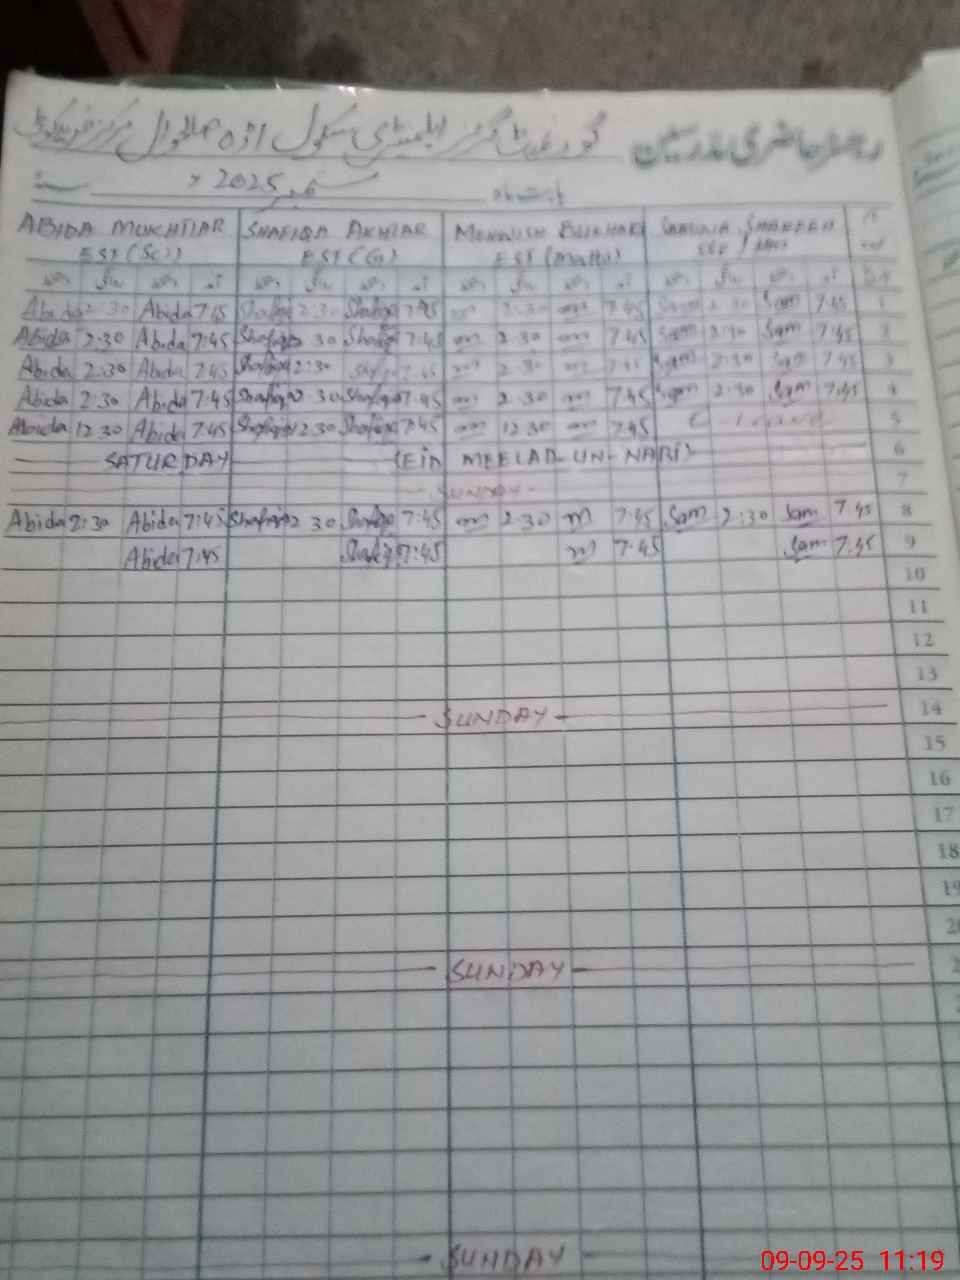 رجسٹر حاضری مدرسین گورنمنٹ گرلز ایلیمنٹری سکول اڈہ
بابت ماہ ستمبر 2025ء سنہ
ABIDA MUKHTIAR SHAFIQA AKHTAR MEHWISH BUKHARI SAMINA SHAHEEN
EST (Sci) EST (G) EST (Maths)
Abida 2:30 Abida 7:45 Shafiqa 2:30 Shafiqa 7:45 m 2:30 m 7:45 Sam 2:30 Sam 7:45 1
Abida 2:30 Abida 7:45 Shafiqa 2 30 Shafiqa 7:45 m 2:30 m 7:45 Sam 2:30 Sam 7:45 2
Abida 2:30 Abida 7:45 Shafiqa 2:30 Shafiqa 7:45 m 2:30 m 7:45 Sam 2:30 Sam 7:45 3
Abida 2:30 Abida 7:45 Shafiqa 2:30 Shafiqa 7:45 m 2:30 m 7:45 Sam 2:30 Sam 7:45 4
Abida 12 30 Abida 7:45 Shafiqa 12 30 Shafiqa 7:45 m 12 30 m 7:45 C-Leave 5
SATURDAY (EID MEELAD-UN-NABI) 6
SUNDAY 7
Abida 2:30 Abida 7:45 Shafiqa 2 30 Shafiqa 7:45 m 2:30 m 7:45 Sam 2:30 Sam 7:45 8
Abida 7:45 Shafiqa 7:45 m 7:45 Sam 7:45 9
10
11
12
13
SUNDAY 14
15
16
17
18
19
20
SUNDAY
SUNDAY
09-09-25 11:19